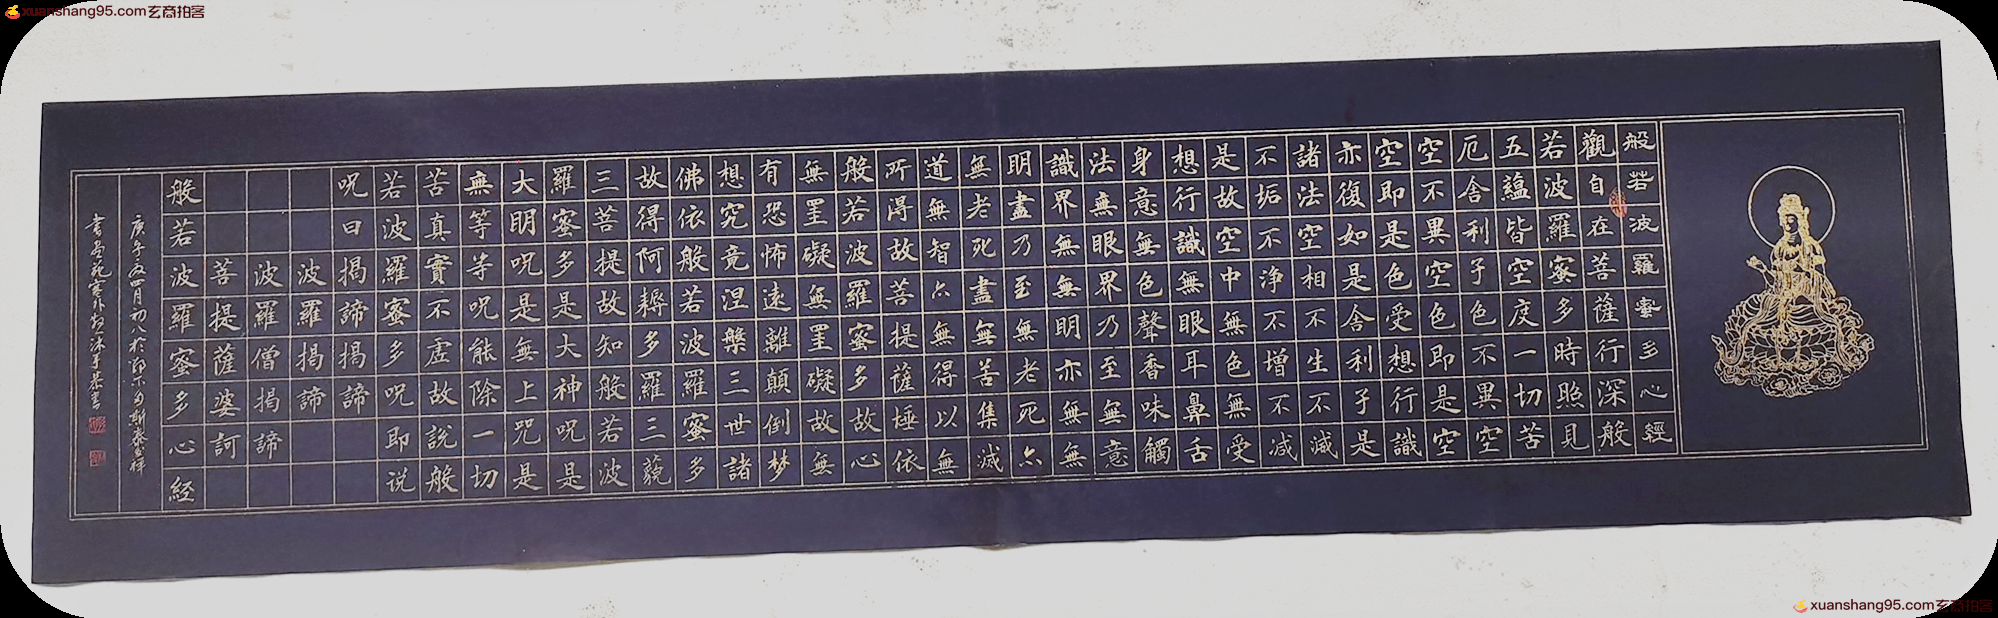 xuanshang95.com玄商拍客
般若波羅蜜多心經
觀自在菩薩行深般
若波羅蜜多時照見
五蘊皆空度一切苦
厄舍利子色不異空
空不異空色即是空
空即是色受想行識
亦復如是舍利子是
諸法空相不生不滅
不垢不净不增不減
是故空中無色無受
想行識無眼耳鼻舌
身意無色聲香味觸
法無眼界乃至無意
識界無無明亦無無
明盡乃至無老死亦
無老死盡無苦集滅
道無智亦無得以無
所得故菩提薩埵依
般若波羅蜜多故心
無罣礙無罣礙故無
有恐怖遠離顛倒梦
想究竟涅槃三世諸
佛依般若波羅蜜多
故得阿耨多羅三藐
三菩提故知般若波
羅蜜多是大神呪是
大明呪是無上咒是
無等等呪能除一切
苦真實不虛故說般
若波羅蜜多呪即说
呪曰揭諦揭諦
波羅揭諦
波羅僧揭諦
菩提薩婆訶
般若波羅蜜多心经
庚午 四月初八於
xuanshang95.com玄商拍客